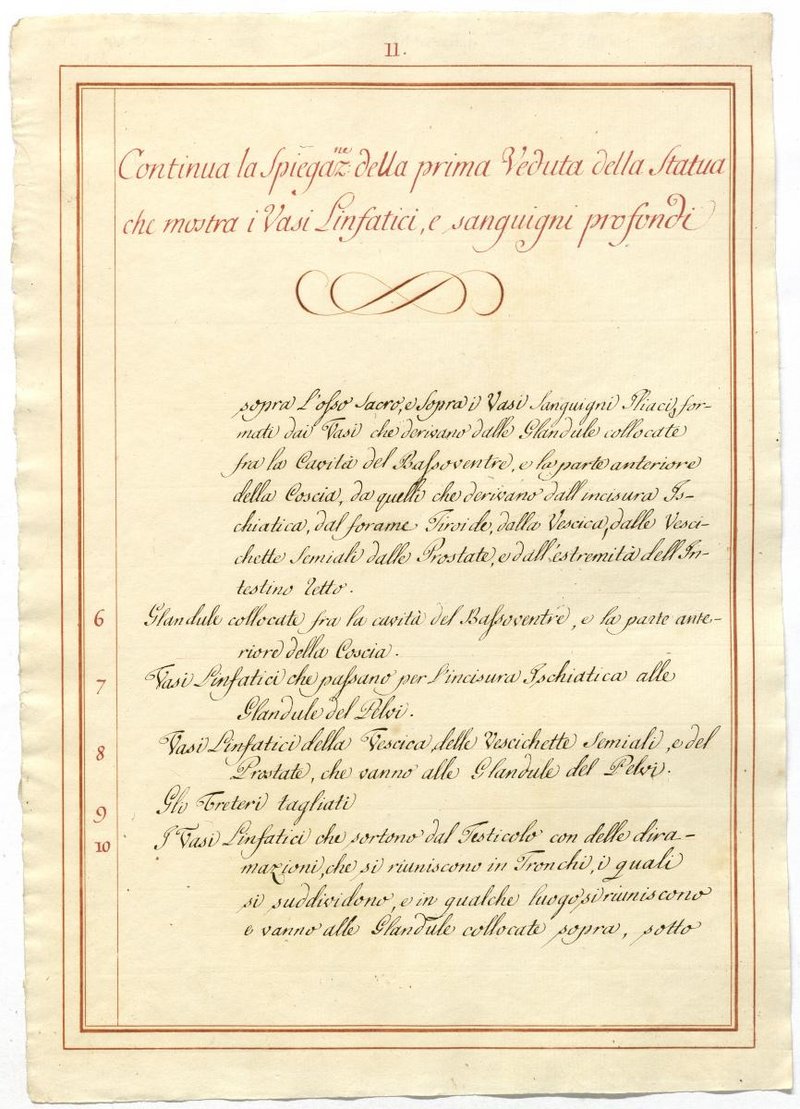 11.
Continua la Spiegaz.ne della prima Veduta della Statua
che mostra i Vasi Linfatici, e sanguigni profondi
sopra L'osso Sacro, e Sopra i Vasi Sanguigni Iliaci, for-
mati dai Vasi che derivano dalle Glandule collocate
fra la Cavità del Bassoventre, e la parte anteriore
della Coscia, da quelli che derivano dall'incisura Is-
chiatica, dal forame Tiroide, dalla Vescica, dalle Vesci-
chette Semiali dalle Prostate, e dall'estremità dell'In-
testino retto.
6 Glandule collocate fra la cavità del Bassoventre, e la parte ante-
riore della Coscia.
7 Vasi Linfatici che passano per l'incisura Ischiatica alle
Glandule del Pelvi.
8 Vasi Linfatici della Vescica, delle Vescichette Semiali, e del
Prostate, che vanno alle Glandule del Pelvi.
9 Gli Ureteri tagliati
10 I Vasi Linfatici che sortono dal Testicolo con delle dira-
mazioni, che si riuniscono in Tronchi, i quali
si suddividono, e in qualche luogo si riuniscono
e vanno alle Glandule collocate sopra, sotto